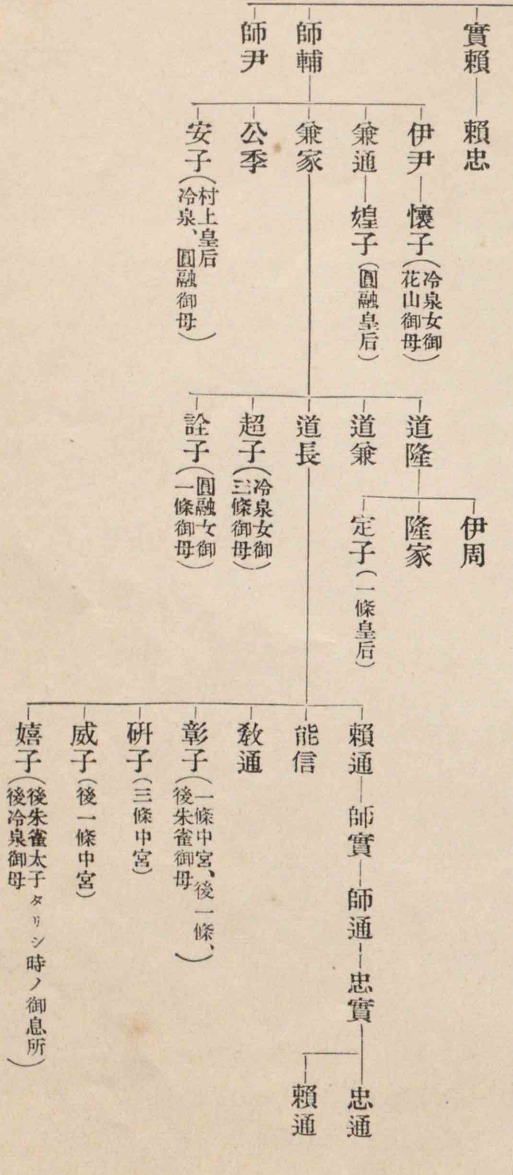 實賴―賴忠
師輔
師尹
伊尹―懷子(冷泉女御
花山御母)
兼通―媓子(圓融皇后)
兼家
公季
安子(村上皇后
冷泉、圓融御母)
道隆
道兼
道長
超子(冷泉女御
三條御母)
詮子(圓融女御
一條御母)
伊周
隆家
定子(一條皇后)
賴通―師實―師通―忠實
能信
敎通
彰子(一條中宮、後一條、
後朱雀御母)
硏子(三條中宮)
威子(後一條中宮)
嬉子(後朱雀太子タリシ時ノ御息所
後冷泉御母)
忠通
賴通